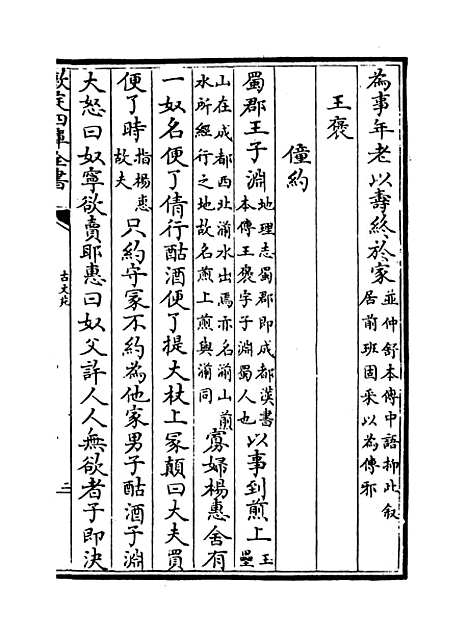 為事年老以壽終於家並仲舒本傳中語抑此叙居前班固采以為傳邪
王褒
僮約
蜀郡王子淵地理志蜀郡即成都漢書本傳王褒字子淵蜀人也以事到煎上王壘
山在成都西北湔水出焉亦名湔山煎水所經行之地故名煎上煎與湔同寡婦楊惠舍有
一奴名便了倩行酤酒便了提大杖上冢顛曰大夫買
便了時指楊惠故夫只約守冢不約為他家男子酤酒子淵
大怒曰奴寧欲賣耶惠曰奴父許人人無欲者子即決
欽定四庫全書
古文苑
二